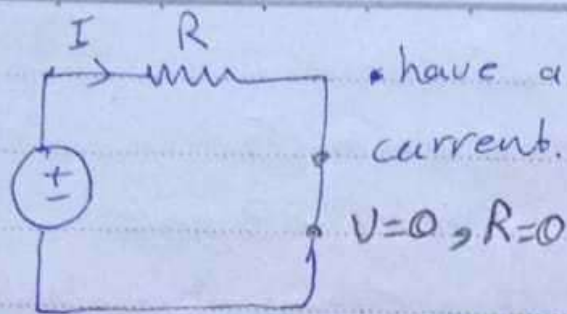 I R
• have a
current.
+
-
V=0, R=0